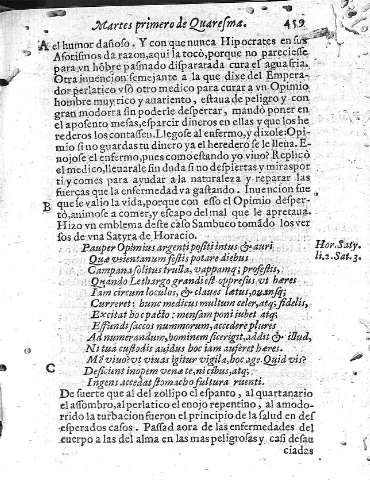 Martes primero de Quaresma. 459
A el humor dañoso. Y con que nunca Hipocrates en sus
Aforismos da razon, aqui la toco, porque no pareciesse
para vn hõbre pasmado disparatada cura el agua fria.
Otra inuencion semejante a la que dixe del Empera-
dor perlatico vsò otro medico para curar a vn Opimio
hombre muy rico y auariento, estaua de peligro y con
gran modorra sin poderle despertar, mandò poner en
el aposento mesas, esparcir dineros en ellas y que los he
rederos los contassen. Llegose al enfermo, y dixole: Opi-
mio si no guardas tu dinero ya el heredero se le lleua. E-
nojose el enfermo, pues como estando yo viuo? Replicò
el medico, lleuarale sin duda si no despiertas y miras por
ti, y comes para ayudar a la naturaleza y reparar las
fuerças que la enfermedad va gastando. Inuencion fue
B que le valio la vida, porque con esso el Opimio desper-
tò, animose a comer, y escapo del mal que le apretaua.
Hizo vn emblema deste caso Sambuco tomãdo los ver
sos de vna Satyra de Horacio.
Pauper Opimius argenti positi intus & auri
Hor. Saty.
Qui veientanum festis potare diebus
li. 2. Sat. 3.
Campana solitus trulla, vappamq; profestis,
Quando Lethargo grandi est oppresus vt hæres
Iam circum loculos, & claues lætus, ouansq;
Curreret: hunc medicus multum celer, atq; fidelis,
Excitat hoc pacto: mensam poni iubet atq;
Effundi saccos nummorum, accedere plures
Ad numerandum, hominem sic erigit, addit & illud,
Ni tua custodis auidus hoc iam auferet hæres.
Mê viuo? vt viuas igitur vigila, hoc age. Quid vis?
C Deficient inopem venæ te, ni cibus, atq;
Ingens accedat stomacho fultura ruenti.
De suerte que al del zollipo el espanto, al quartanario
el assombro, al perlatico el enojo repentino, al amodo-
rrido la turbacion fueron el principio de la salud en des
esperados casos. Passad aora de las enfermedades del
cuerpo a las del alma en las mas peligrosas y casi desau
ciadas